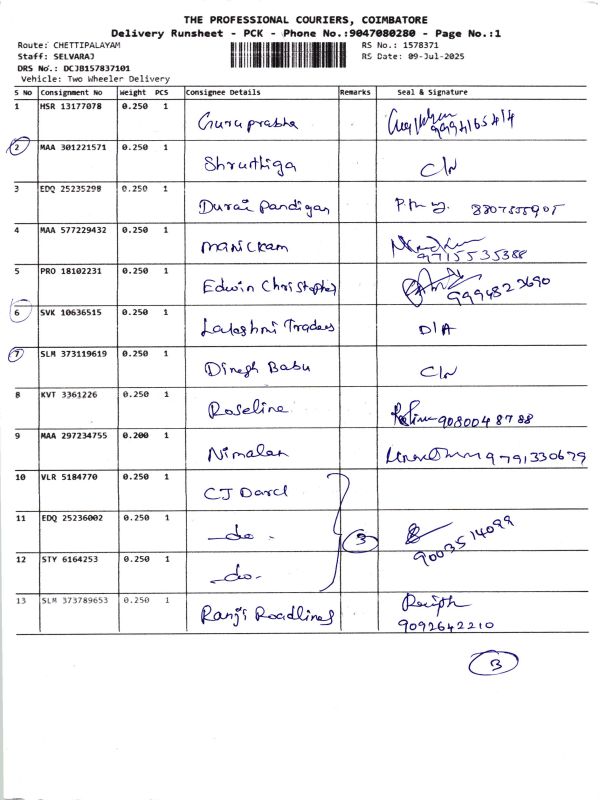 THE PROFESSIONAL COURIERS, COIMBATORE
Delivery Runsheet - PCK - Phone No.:9047080280 - Page No.:1
Route: CHETTIPALAYAM RS No.: 1578371
Staff: SELVARAJ RS Date: 09-Jul-2025
DRS No.: DCJB157837101
Vehicle: Two Wheeler Delivery
S No Consignment No Weight PCS Consignee Details Remarks Seal & Signature
1 HSR 13177078 0.250 1 Guruprabha 9994165414
2 MAA 301221571 0.250 1 Shruthiga C/N
3 EDQ 25235298 0.250 1 Durai Pandigan 8807555905
4 MAA 577229432 0.250 1 Manickam 9715535388
5 PRO 18102231 0.250 1 Edwin Christopher 9994823690
6 SVK 10636515 0.250 1 Lakshmi Traders D/A
7 SLM 373119619 0.250 1 Dinesh Babu C/N
8 KVT 3361226 0.250 1 Roseline 9080048788
9 MAA 297234755 0.200 1 Nimalan 9791330679
10 VLR 5184770 0.250 1 CJ Darcl
11 EDQ 25236002 0.250 1 -do- 3 9003514099
12 STY 6164253 0.250 1 -do-
13 SLM 373789653 0.250 1 Ranji Roadlines 9092642210
3